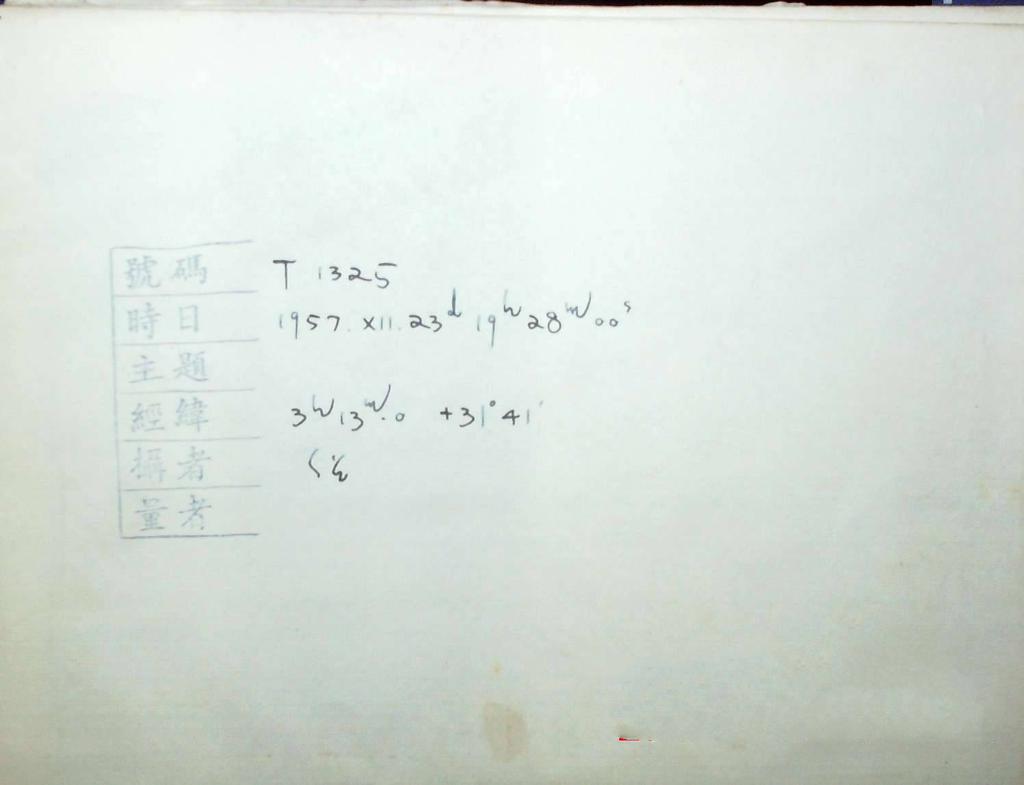 號碼 T 1325
時日 1957. XII. 23ᵈ 19ʰ 28ᵐ 00ˢ
主題
經緯 3ʰ 13ᵐ.0 +31° 41'
攝者
量者